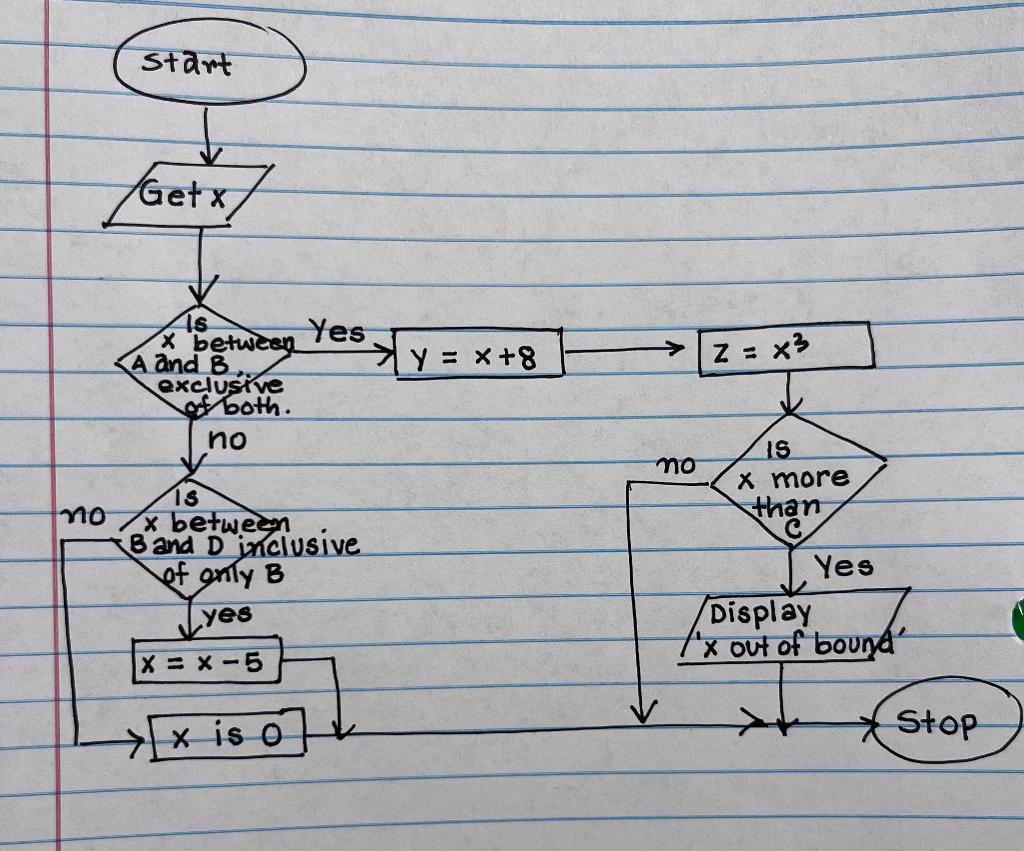 Start
Get x
Is
x between
A and B,
exclusive
of both.
Yes
y = x + 8
z = x³
no
Is
x between
B and D inclusive
of only B
no
yes
x = x - 5
x is 0
Is
x more
than
C
no
Yes
Display
'x out of bound'
Stop